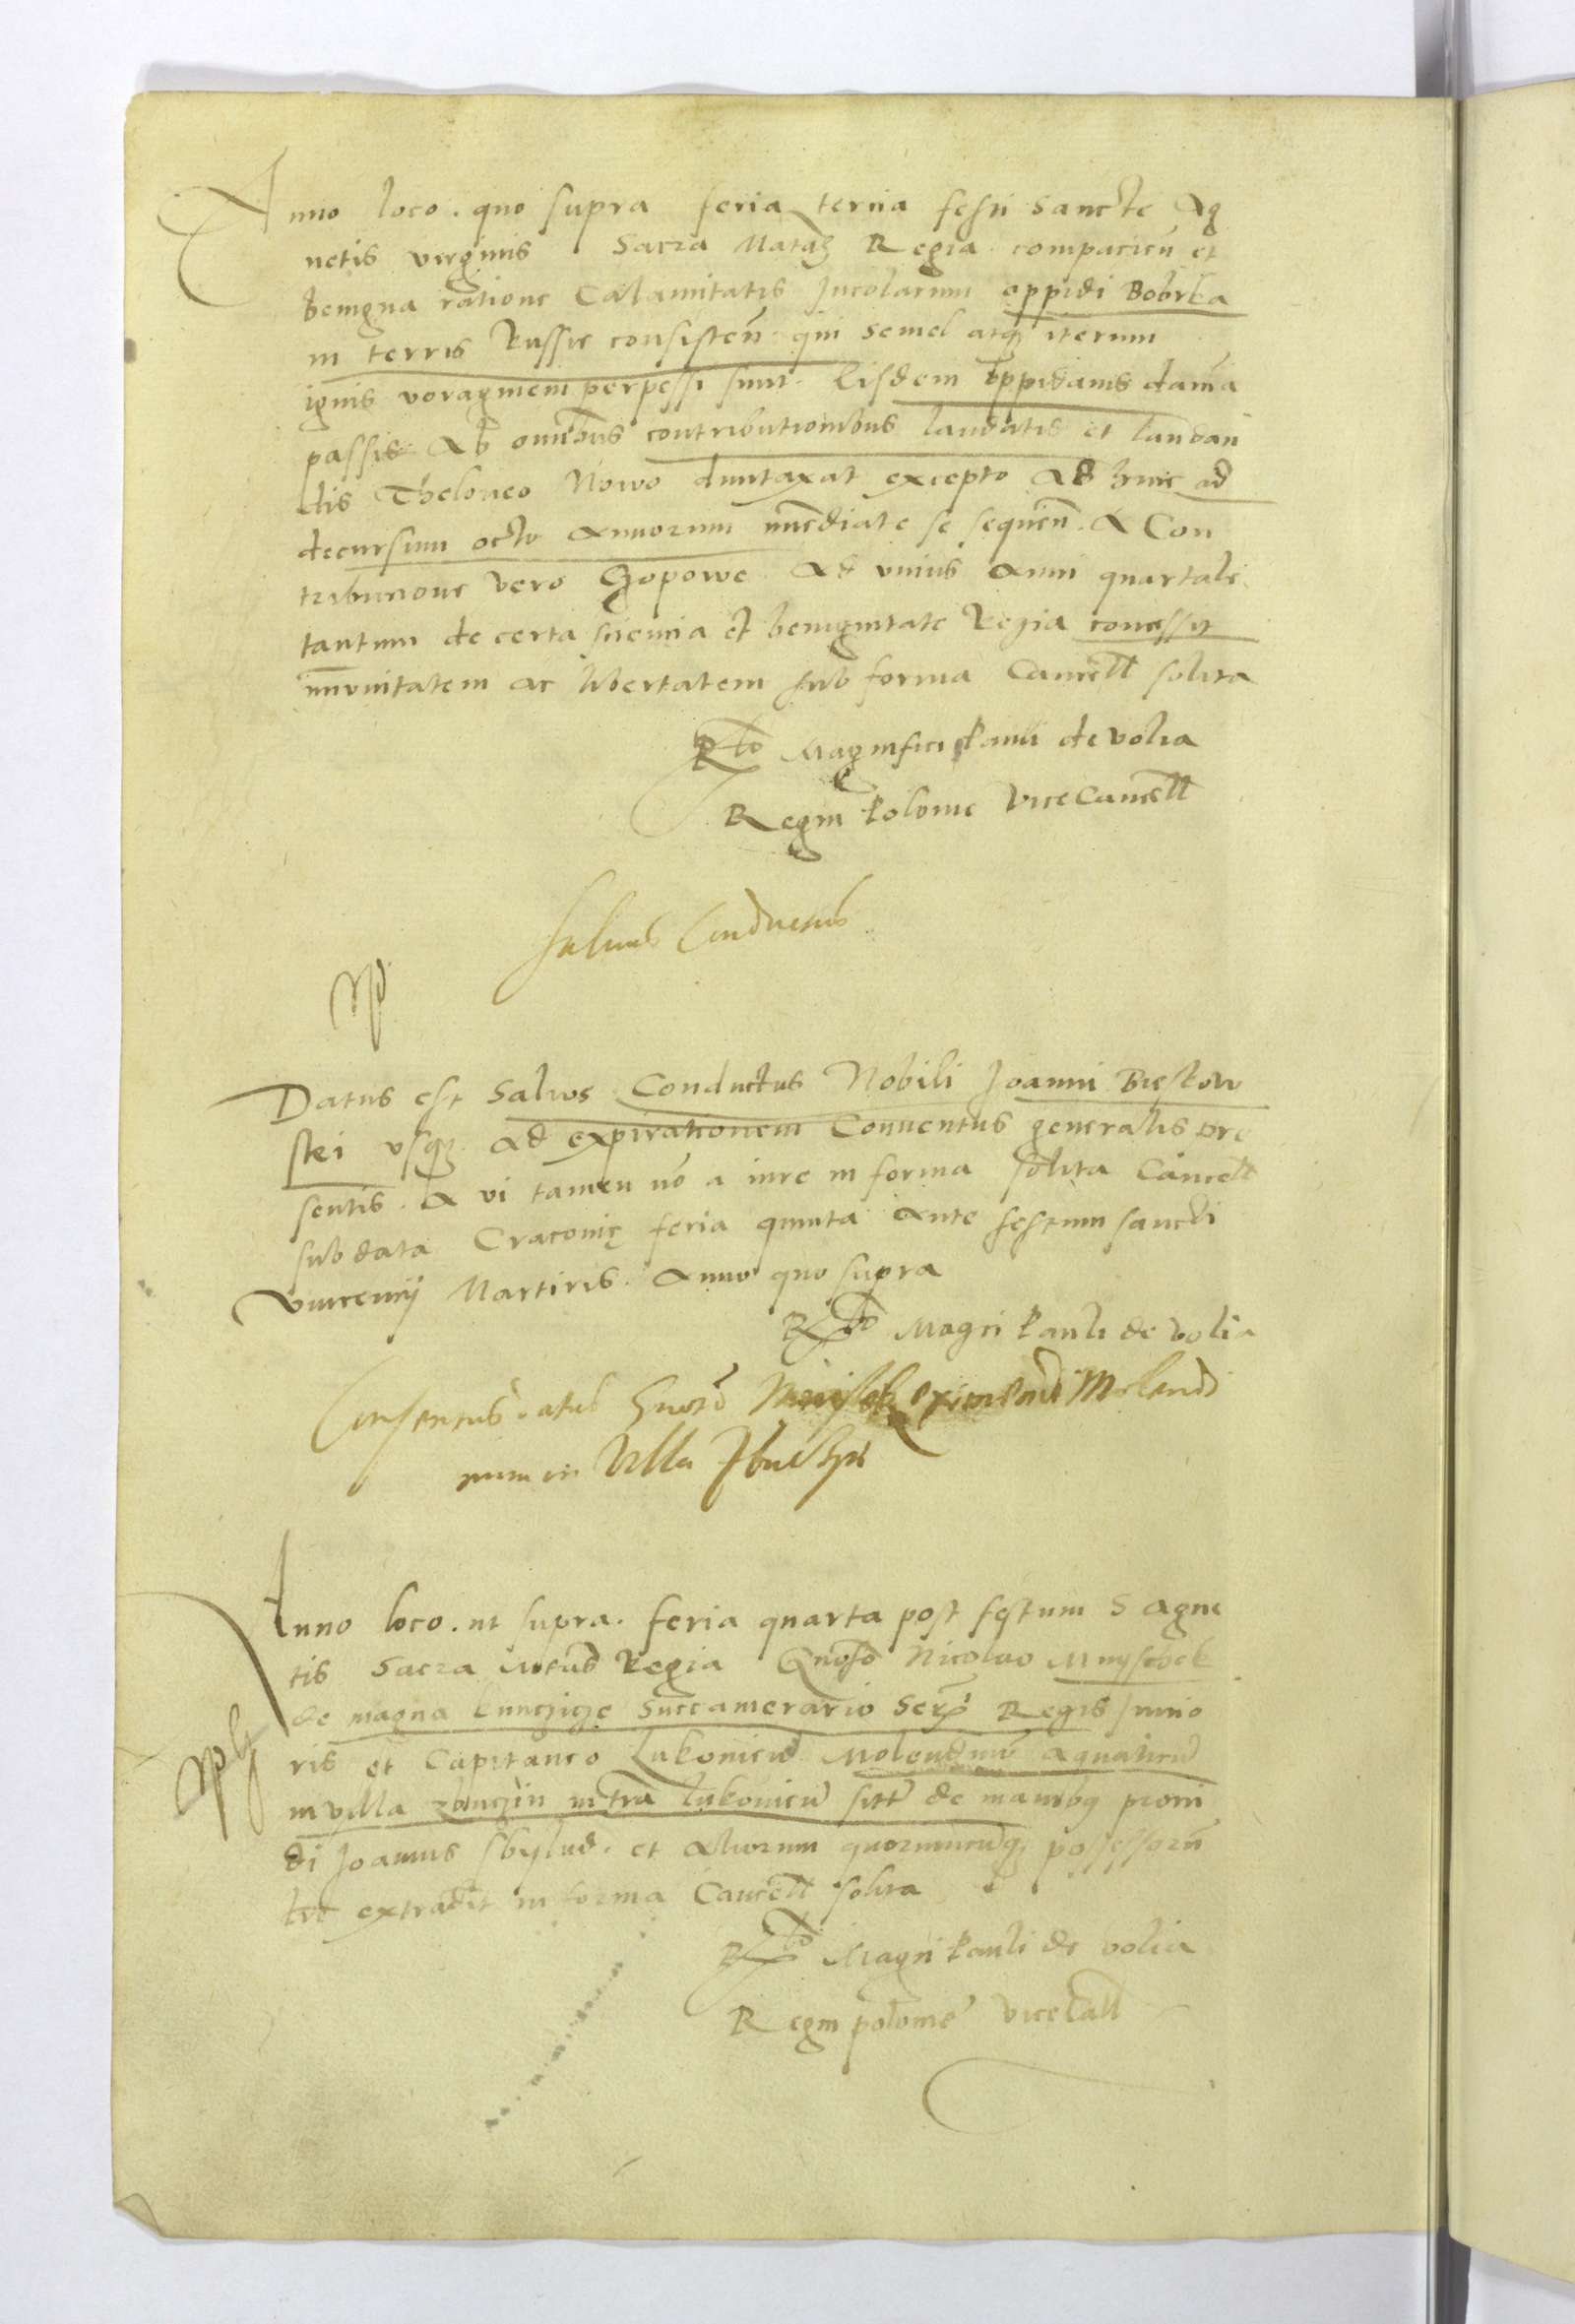 Anno loco. quo supra feria tertia festi Sancte Ag
netis virginis Sacra Regia et
benigna ratione Calamitatis Incolarum oppidi Bobrka
in terris Russie consisten̄ qui semel atqꝫ iterum
ignis voraginem perpessi sunt. Eisdem oppidanis dam̄a
passis Ab omn̄ibus contributionibus laudatis et laudan
dis Theloneo Nowo duntaxat excepto Ad hinc ad
decursum octo Annorum im̄ediate se sequen̄. A Con
tributione vero Czopowe Ad unius Anni quartale
tantum de certa scientia et benignitate Regia concessit
im̄unitatem ac libertatem sub forma Cancell solita
Rᵗᵒ Magnifici Pauli de Volia
Regni Polonie ViceCancell
Saluus Conductus
Datus est Salvos Conductus Nobili Joanni Brestow
skei usqꝫ Ad expirationem Conventus generalis pre
sentis. A vi tamen nō a iure in forma solita Cancell
sub data Cracovię feria quinta Ante festum sancti
Vincentij Martiris. Anno quo supra
Rᵗᵒ Magci Pauli de Volia
Consensus Molendi
num in Villa
Anno loco. ut supra. feria quarta post festum S Agne
tis Sacra Regia Gnoso Nicolao Mnyschek
de magna Kunczicze Succamerario Regis Iunio
ris et Capitaneo Lukoviēn Molendinū aquaticū
in villa in tr̄a Lukoviēn sitū de manibqꝫ
di Joannis et Aliorum quorumcunqꝫ possessorū
in forma Cancell solita
Rᵗᵒ Magci Pauli de Volia
Regni polonie viceCall